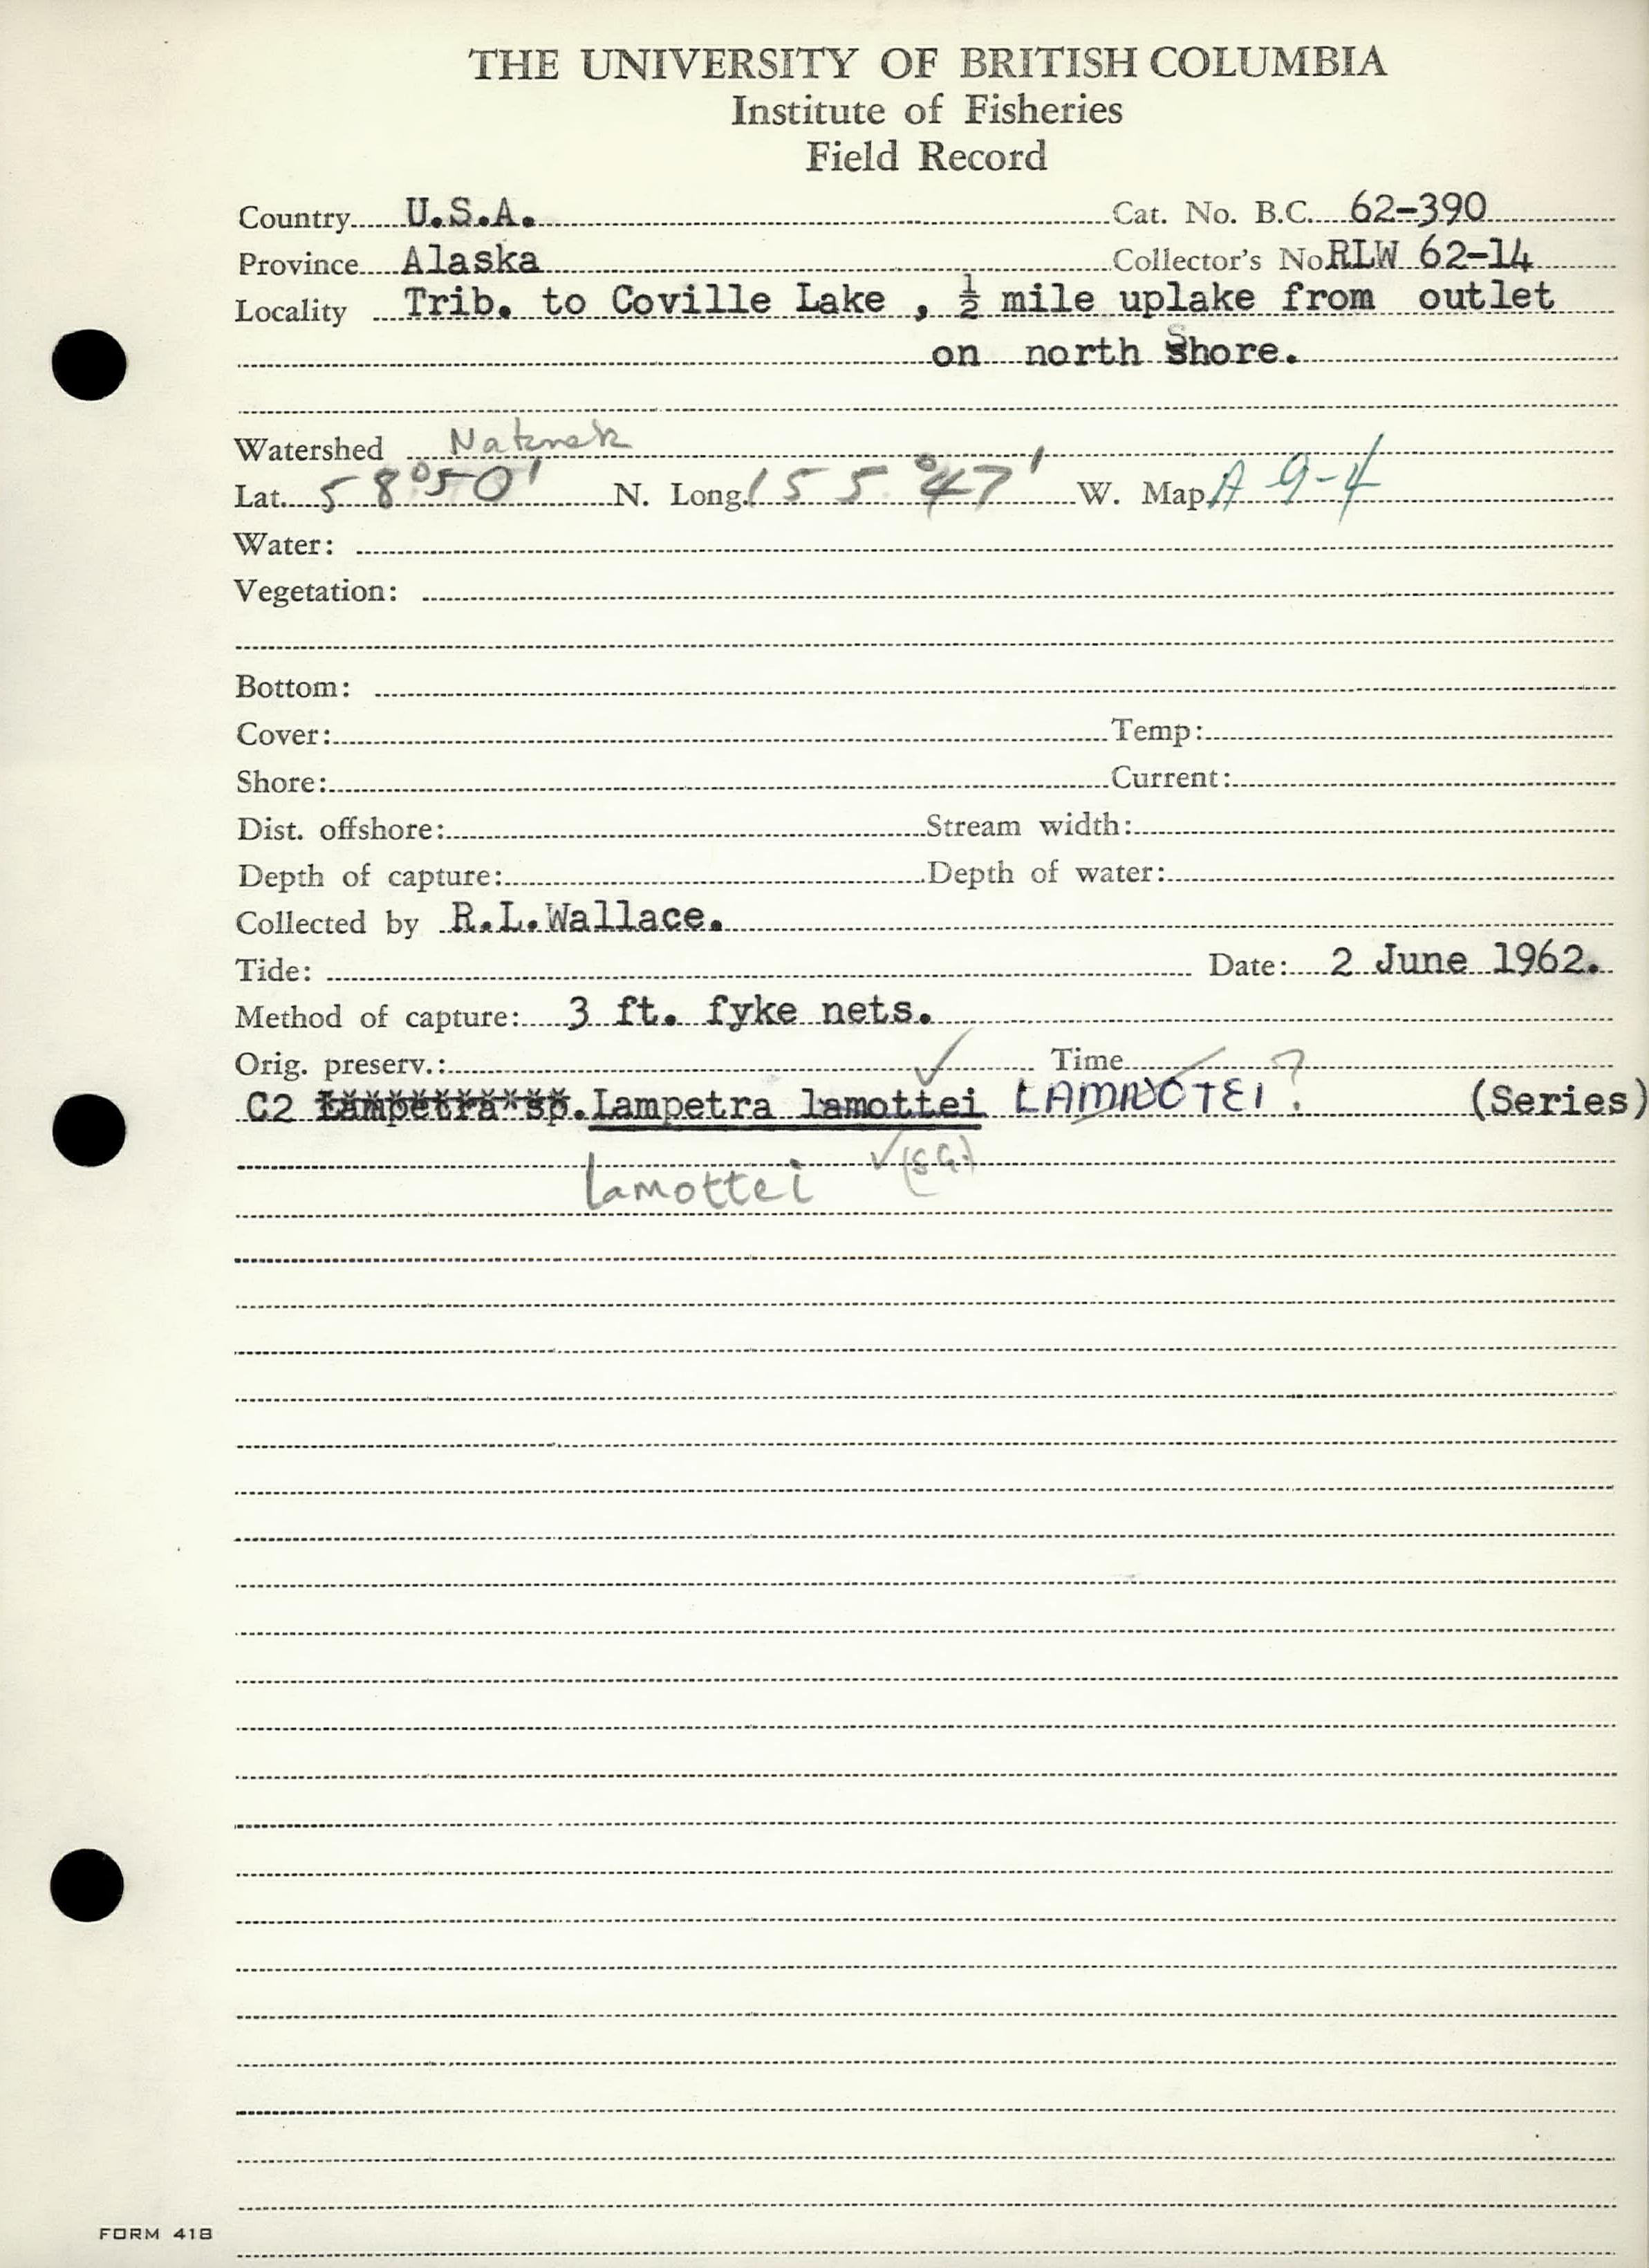 THE UNIVERSITY OF BRITISH COLUMBIA
Institute of Fisheries
Field Record
Country U.S.A. Cat. No. B.C. 62-390
Province Alaska Collector's No RLW 62-14
Locality Trib. to Coville Lake , ½ mile uplake from outlet
on north Shore.
Watershed Naknek
Lat. 58°50' N. Long. 155°47' W. Map A 9-4
Water:
Vegetation:
Bottom:
Cover: Temp:
Shore: Current:
Dist. offshore: Stream width:
Depth of capture: Depth of water:
Collected by R.L.Wallace.
Tide: Date: 2 June 1962.
Method of capture: 3 ft. fyke nets.
Orig. preserv.: ✓ Time
C2 Lampetra sp. Lampetra lamottei ? (Series)
lamottei ✓ (S.G.)
FORM 418